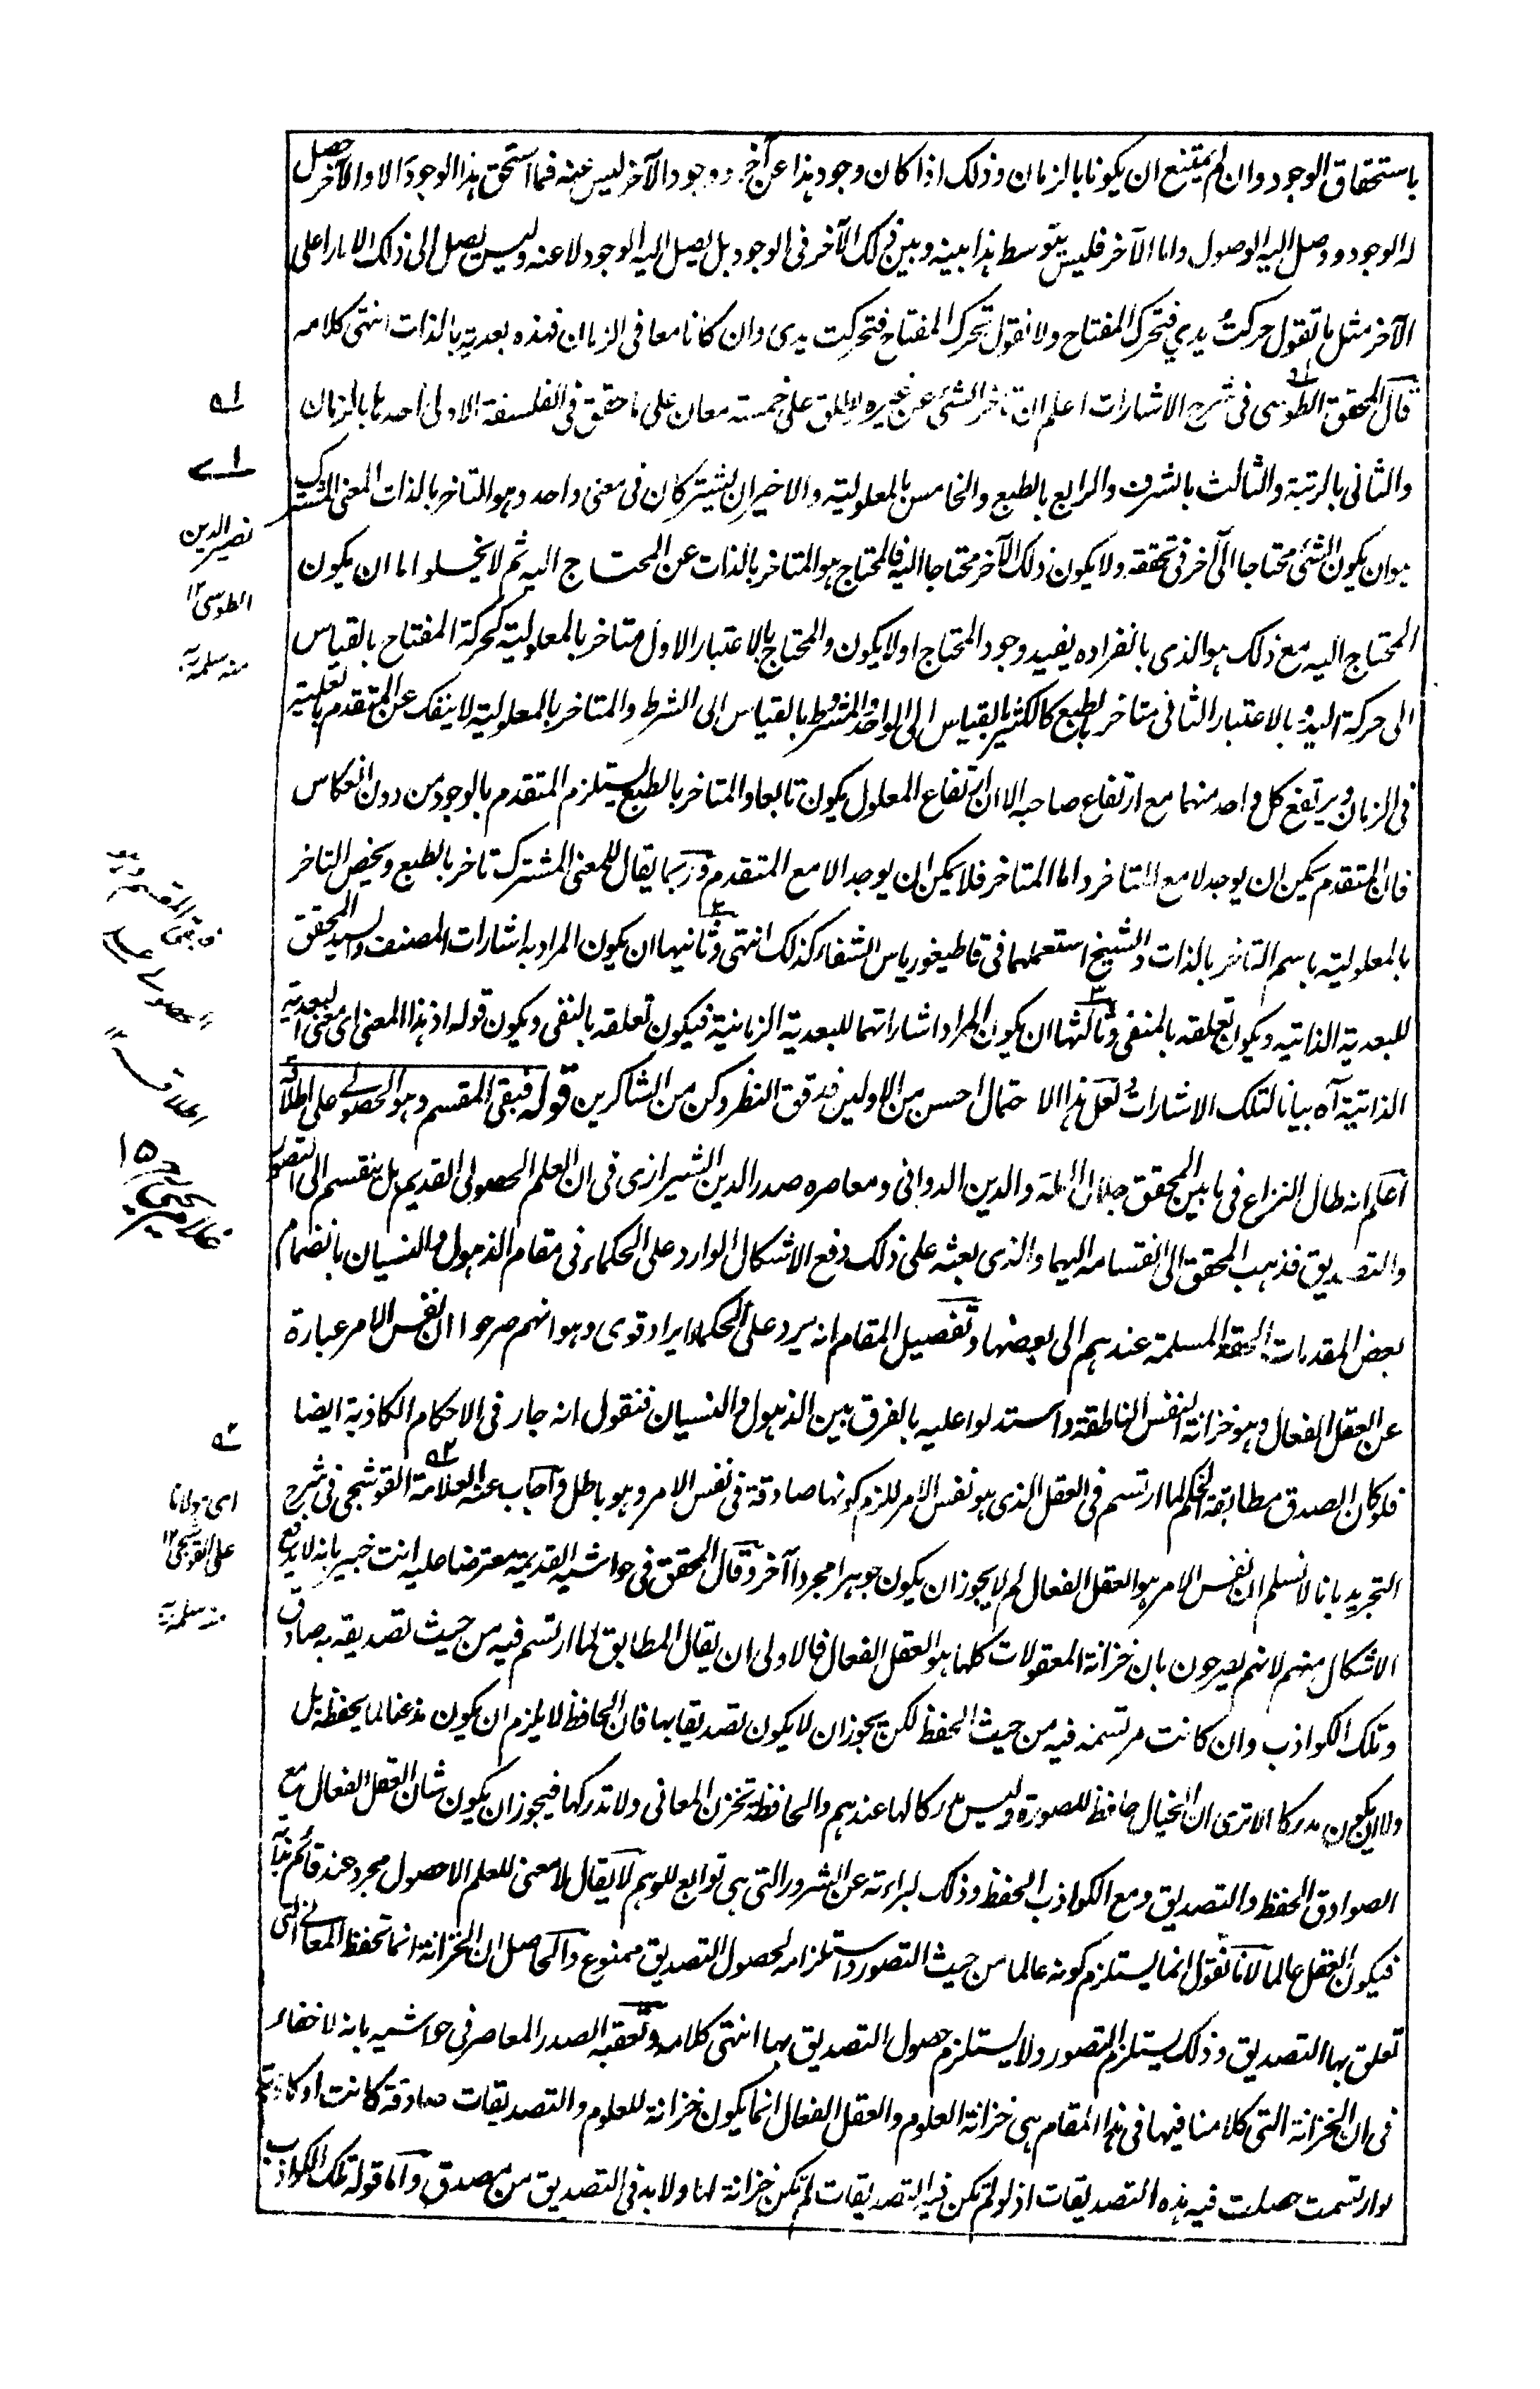 باستحقاق الوجود وان لم يمتنع ان يكونا بالزمان وذلك اذا كان وجود هذا عن آخر ووجود الآخر ليس عنه فما استحق هذا الوجود الا والآخر حصل
له الوجود ووصل اليه الوصول واما الآخر فليس يتوسط هذا بينه وبين ذلك الآخر فى الوجود بل يصل اليه الوجود لا عنه وليس يصل الى ذلك الا مارا على
الآخر مثل ما تقول حركت يدي فتحرك المفتاح ولا نقول تحرك المفتاح فتحركت يدى وان كانا معا فى الزمان فهذه بعدية بالذات انتهى كلامه
قال المحقق الطوسى فى شرح الاشارات اعلم ان تاخر الشئ عن غيره يطلق على خمسة معان على ما حقق فى الفلسفة الاولى احدها بالزمان
والثانى بالرتبة والثالث بالشرف والرابع بالطبع والخامس بالمعلولية والاخيران يشتركان فى معنى واحد وهو المتاخر بالذات المعنى المشترك
هو ان يكون الشئ محتاجا الى آخر فى تحققه ولا يكون ذلك الآخر محتاجا اليه فالمحتاج هو المتاخر بالذات عن المحتاج اليه ثم لا يخلوا اما ان يكون
المحتاج اليه مع ذلك هو الذى بانفراده يفيد وجود المحتاج او لا يكون والمحتاج بالاعتبار الاول متاخر بالمعلولية كحركة المفتاح بالقياس
الى حركة اليد وبالاعتبار الثانى متاخر بالطبع كالكثير بالقياس الى الواحد والمشروط بالقياس الى الشرط والمتاخر بالمعلولية لا ينفك عن المتقدم بالعلية
فى الزمان ويرتفع كل واحد منهما مع ارتفاع صاحبه الا ان ارتفاع المعلول يكون تابعا والمتاخر بالطبع يستلزم المتقدم بالوجود من دون انعكاس
فان المتقدم يمكن ان يوجد لا مع المتاخر واما المتاخر فلا يمكن ان يوجد الا مع المتقدم وربما يقال للمعنى المشترك تاخر بالطبع ويخص التاخر
بالمعلولية باسم التاخر بالذات والشيخ استعملهما فى قاطيغورياس الشفاء كذلك انتهى وثانيها ان يكون المراد به اشارات المصنف والسيد المحقق
للبعدية الذاتية ويكون تعلقه بالمنفى وثالثها ان يكون المراد اشاراتهما للبعدية الزمانية فيكون تعلقه بالنفى ويكون قوله اذ هذا المعنى اى معنى البعدية
الذاتية آه بيانا لتلك الاشارات ولعل هذا الاحتمال احسن من الاولين فدقق النظر وكن من الشاكرين قوله فبقى المقسم وهو الحصولى على اطلاقه
اعلم انه طال النزاع فى ما بين المحقق جلال الملة والدين الدوانى ومعاصره صدر الدين الشيرازى فى ان العلم الحصولى القديم هل ينقسم الى التصور
والتصديق فذهب المحقق الى انقسامه اليهما والذى بعثه على ذلك دفع الاشكال الوارد على الحكماء فى مقام الذهول والنسيان بانضمام
بعض المقدمات الحقة المسلمة عندهم الى بعضها وتفصيل المقام انه يرد على الحكماء ايراد قوى وهو انهم صرحوا ان نفس الامر عبارة
عن العقل الفعال وهو خزانة النفس الناطقة واستدلوا عليه بالفرق بين الذهول والنسيان فنقول انه جار فى الاحكام الكاذبة ايضا
فلو كان الصدق مطابقة الحكم لما ارتسم فى العقل الذى هو نفس الامر للزم كونها صادقة فى نفس الامر وهو باطل واجاب عنه العلامة القوشجى فى شرح
التجريد بانا لا نسلم ان نفس الامر هو العقل الفعال لم لا يجوز ان يكون جوهرا مجردا آخر وقال المحقق فى حواشيه القديمة معترضا عليه انت خبير بانه لا يدفع
الاشكال منهم لانهم يصرحون بان خزانة المعقولات كلها هو العقل الفعال فالاولى ان يقال المطابق لما ارتسم فيه من حيث تصديقه به صادق
وتلك الكواذب وان كانت مرتسمة فيه من حيث الحفظ لكن يجوز ان لا يكون تصديقا بها فان الحافظ لا يلزم ان يكون مذعنا لما يحفظه بل
ولا ان يكون مدركا الا ترى ان الخيال حافظ للصورة وليس مدركا لها عندهم والحافظة تخزن المعانى ولا تدركها فيجوز ان يكون شان العقل الفعال مع
الصوادق الحفظ والتصديق ومع الكواذب الحفظ وذلك لبراءته عن الشرور التى هى توابع للوهم لا يقال لا معنى للعلم الا حصول مجرد عند قائم بذاته
فيكون العقل عالما لانا نقول انما يستلزم كونه عالما من حيث التصور واستلزامه لحصول التصديق ممنوع والحاصل ان الخزانة انما تحفظ المعانى التى
تعلق بها التصديق وذلك يستلزم التصور ولا يستلزم حصول التصديق بها انتهى كلامه وتعقبه الصدر المعاصر فى حواشيه بانه لا خفاء
فى ان الخزانة التى كلامنا فيها فى هذا المقام هى خزانة العلوم والعقل الفعال انما يكون خزانة للعلوم والتصديقات صادقة كانت او كاذبة
لو ارتسمت حصلت فيه هذه التصديقات اذ لو لم تكن فيه التصديقات لم تكن خزانة لها ولا بد فى التصديق من مصدق واما قوله تلك الكواذب
نصير الدين
الطوسى ١٢
منه سلمه
فبقى المقسم وهو
الحصولى على
اطلاقه
غلام يحيى ص ١٥
اى مولانا
على القوشجى ١٢
منه سلمه